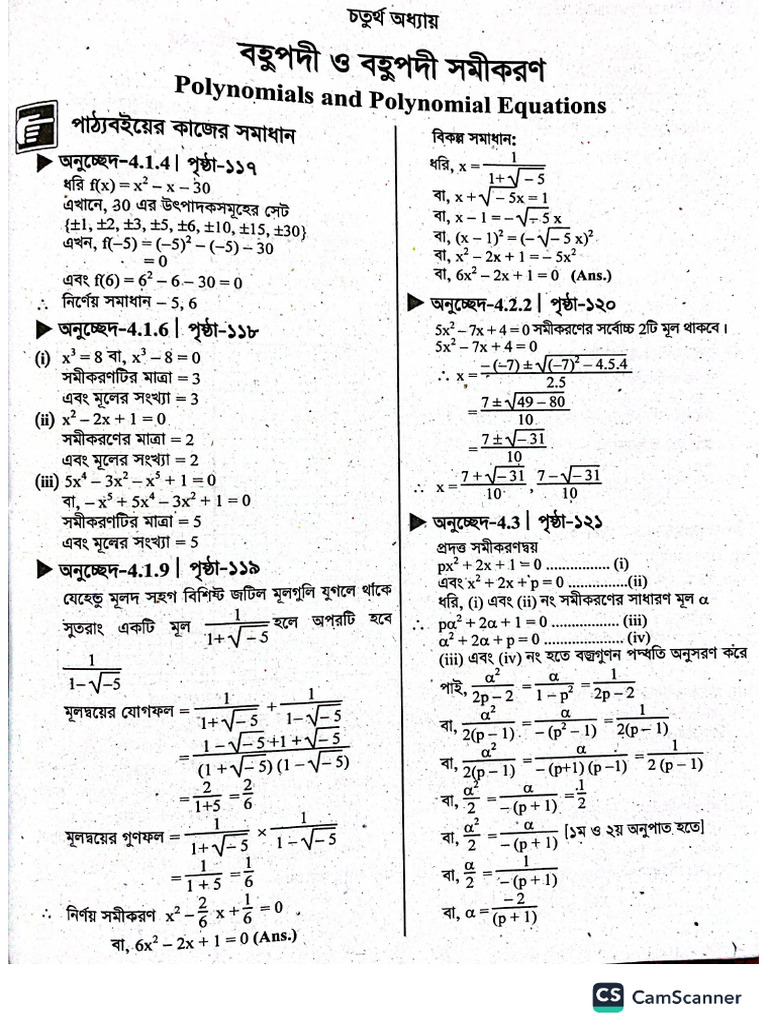 চতুর্থ অধ্যায়
বহুপদী ও বহুপদী সমীকরণ
Polynomials and Polynomial Equations
পাঠ্যবইয়ের কাজের সমাধান
▶ অনুচ্ছেদ-4.1.4 | পৃষ্ঠা-১১৭
ধরি f(x) = x² – x – 30
এখানে, 30 এর উৎপাদকসমূহের সেট
{±1, ±2, ±3, ±5, ±6, ±10, ±15, ±30}
এখন, f(–5) = (–5)² – (–5) – 30
= 0
এবং f(6) = 6² – 6 – 30 = 0
∴ নির্ণেয় সমাধান – 5, 6
▶ অনুচ্ছেদ-4.1.6 | পৃষ্ঠা-১১৮
(i) x³ = 8 বা, x³ – 8 = 0
সমীকরণটির মাত্রা = 3
এবং মূলের সংখ্যা = 3
(ii) x² – 2x + 1 = 0
সমীকরণের মাত্রা = 2
এবং মূলের সংখ্যা = 2
(iii) 5x⁴ – 3x² – x⁵ + 1 = 0
বা, – x⁵ + 5x⁴ – 3x² + 1 = 0
সমীকরণটির মাত্রা = 5
এবং মূলের সংখ্যা = 5
▶ অনুচ্ছেদ-4.1.9 | পৃষ্ঠা-১১৯
যেহেতু মূলদ সহগ বিশিষ্ট জটিল মূলগুলি যুগলে থাকে
সুতরাং একটি মূল 1/(1+√–5) হলে অপরটি হবে
1/(1–√–5)
মূলদ্বয়ের যোগফল = 1/(1+√–5) + 1/(1–√–5)
= (1–√–5+1+√–5)/((1+√–5)(1–√–5))
= 2/(1+5) = 2/6
মূলদ্বয়ের গুণফল = 1/(1+√–5) × 1/(1–√–5)
= 1/(1+5) = 1/6
∴ নির্ণয় সমীকরণ x² – 2/6 x + 1/6 = 0
বা, 6x² – 2x + 1 = 0 (Ans.)
বিকল্প সমাধান:
ধরি, x = 1/(1+√–5)
বা, x + √–5x = 1
বা, x – 1 = –√–5 x
বা, (x – 1)² = (–√–5 x)²
বা, x² – 2x + 1 = – 5x²
বা, 6x² – 2x + 1 = 0 (Ans.)
▶ অনুচ্ছেদ-4.2.2 | পৃষ্ঠা-১২০
5x² – 7x + 4 = 0 সমীকরণের সর্বোচ্চ 2টি মূল থাকবে।
5x² – 7x + 4 = 0
∴ x = (– (–7) ± √((–7)² – 4.5.4))/2.5
= (7 ± √(49 – 80))/10
= (7 ± √–31)/10
∴ x = (7 + √–31)/10 , (7 – √–31)/10
▶ অনুচ্ছেদ-4.3 | পৃষ্ঠা-১২১
প্রদত্ত সমীকরণদ্বয়
px² + 2x + 1 = 0 ................ (i)
এবং x² + 2x + p = 0 ...............(ii)
ধরি, (i) এবং (ii) নং সমীকরণের সাধারণ মূল α
∴ pα² + 2α + 1 = 0 ................. (iii)
α² + 2α + p = 0 .................... (iv)
(iii) এবং (iv) নং হতে বজ্রগুণন পদ্ধতি অনুসরণ করে
পাই, α²/(2p – 2) = α/(1 – p²) = 1/(2p – 2)
বা, α²/(2(p – 1)) = α/(– (p² – 1)) = 1/(2(p – 1))
বা, α²/(2(p – 1)) = α/(– (p+1) (p –1)) = 1/(2 (p – 1))
বা, α²/2 = α/(– (p + 1)) = 1/2
বা, α²/2 = α/(– (p + 1)) [১ম ও ২য় অনুপাত হতে]
বা, α/2 = 1/(– (p + 1))
বা, α = –2/(p + 1)
CS CamScanner